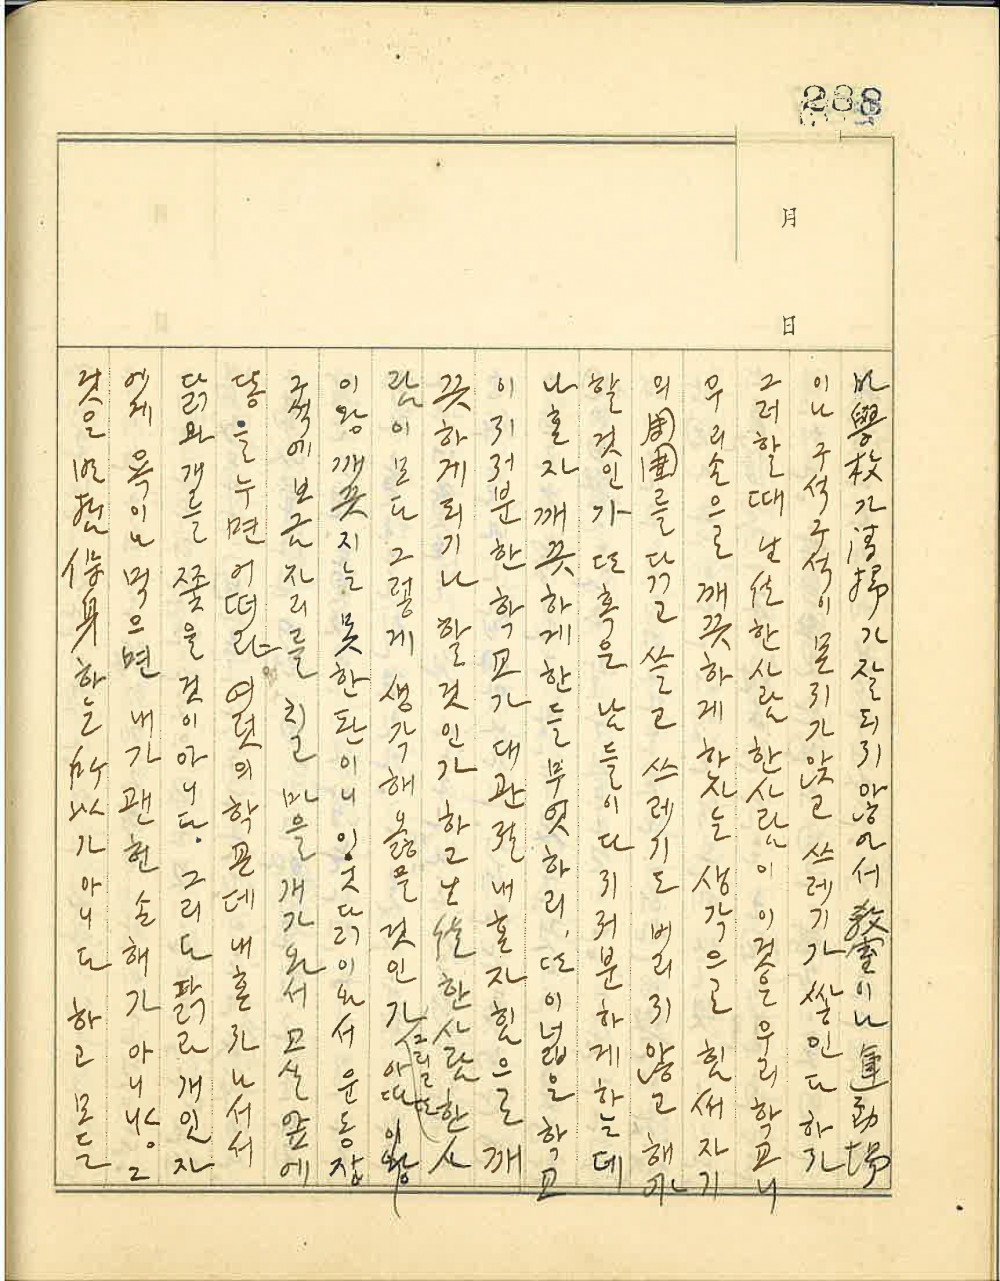 288
月
日
學校가 淸掃가 잘되지 않어서 敎室이나 運動場
이나 구석구석이 몬지가 앉고 쓰레기가 쌓인다 하자
그러할때 난 한사람 한사람이 이것은 우리 학교니
우리손으로 깨끗하게 하자는 생각으로 힘써 자기
의 周圍를 닦고 쓸고 쓰레기도 버리지 않고 해야
할 것인가 또 혹은 남들이 다 지저분하게 하는데
나혼자 깨끗하게한들 무엇하리, 또 이 넓은 학교
이 지저분한 학교가 대관절 내 혼자 힘으로 깨
끗하게되기나 할 것인가 하고 난 한사람 한사
람이 모도 그렇게 생각해 옳을 것인가
이왕 깨끗지는 못한 판이니 이웃 다리와서 운동장
구석에 보금자리를 치고 마을 개가 와서 교실 앞에
똥을 누면 어떠랴 여럿의 학교데 내 혼자 나서서
닭와 개를 쫓을 것이 아니다. 그리도 닭 개임자
에게 욕이나 먹으면 내가 괜헌 손해가 아니냐, 고
것은 明哲保身하는 所以가 아니다 하고 모든